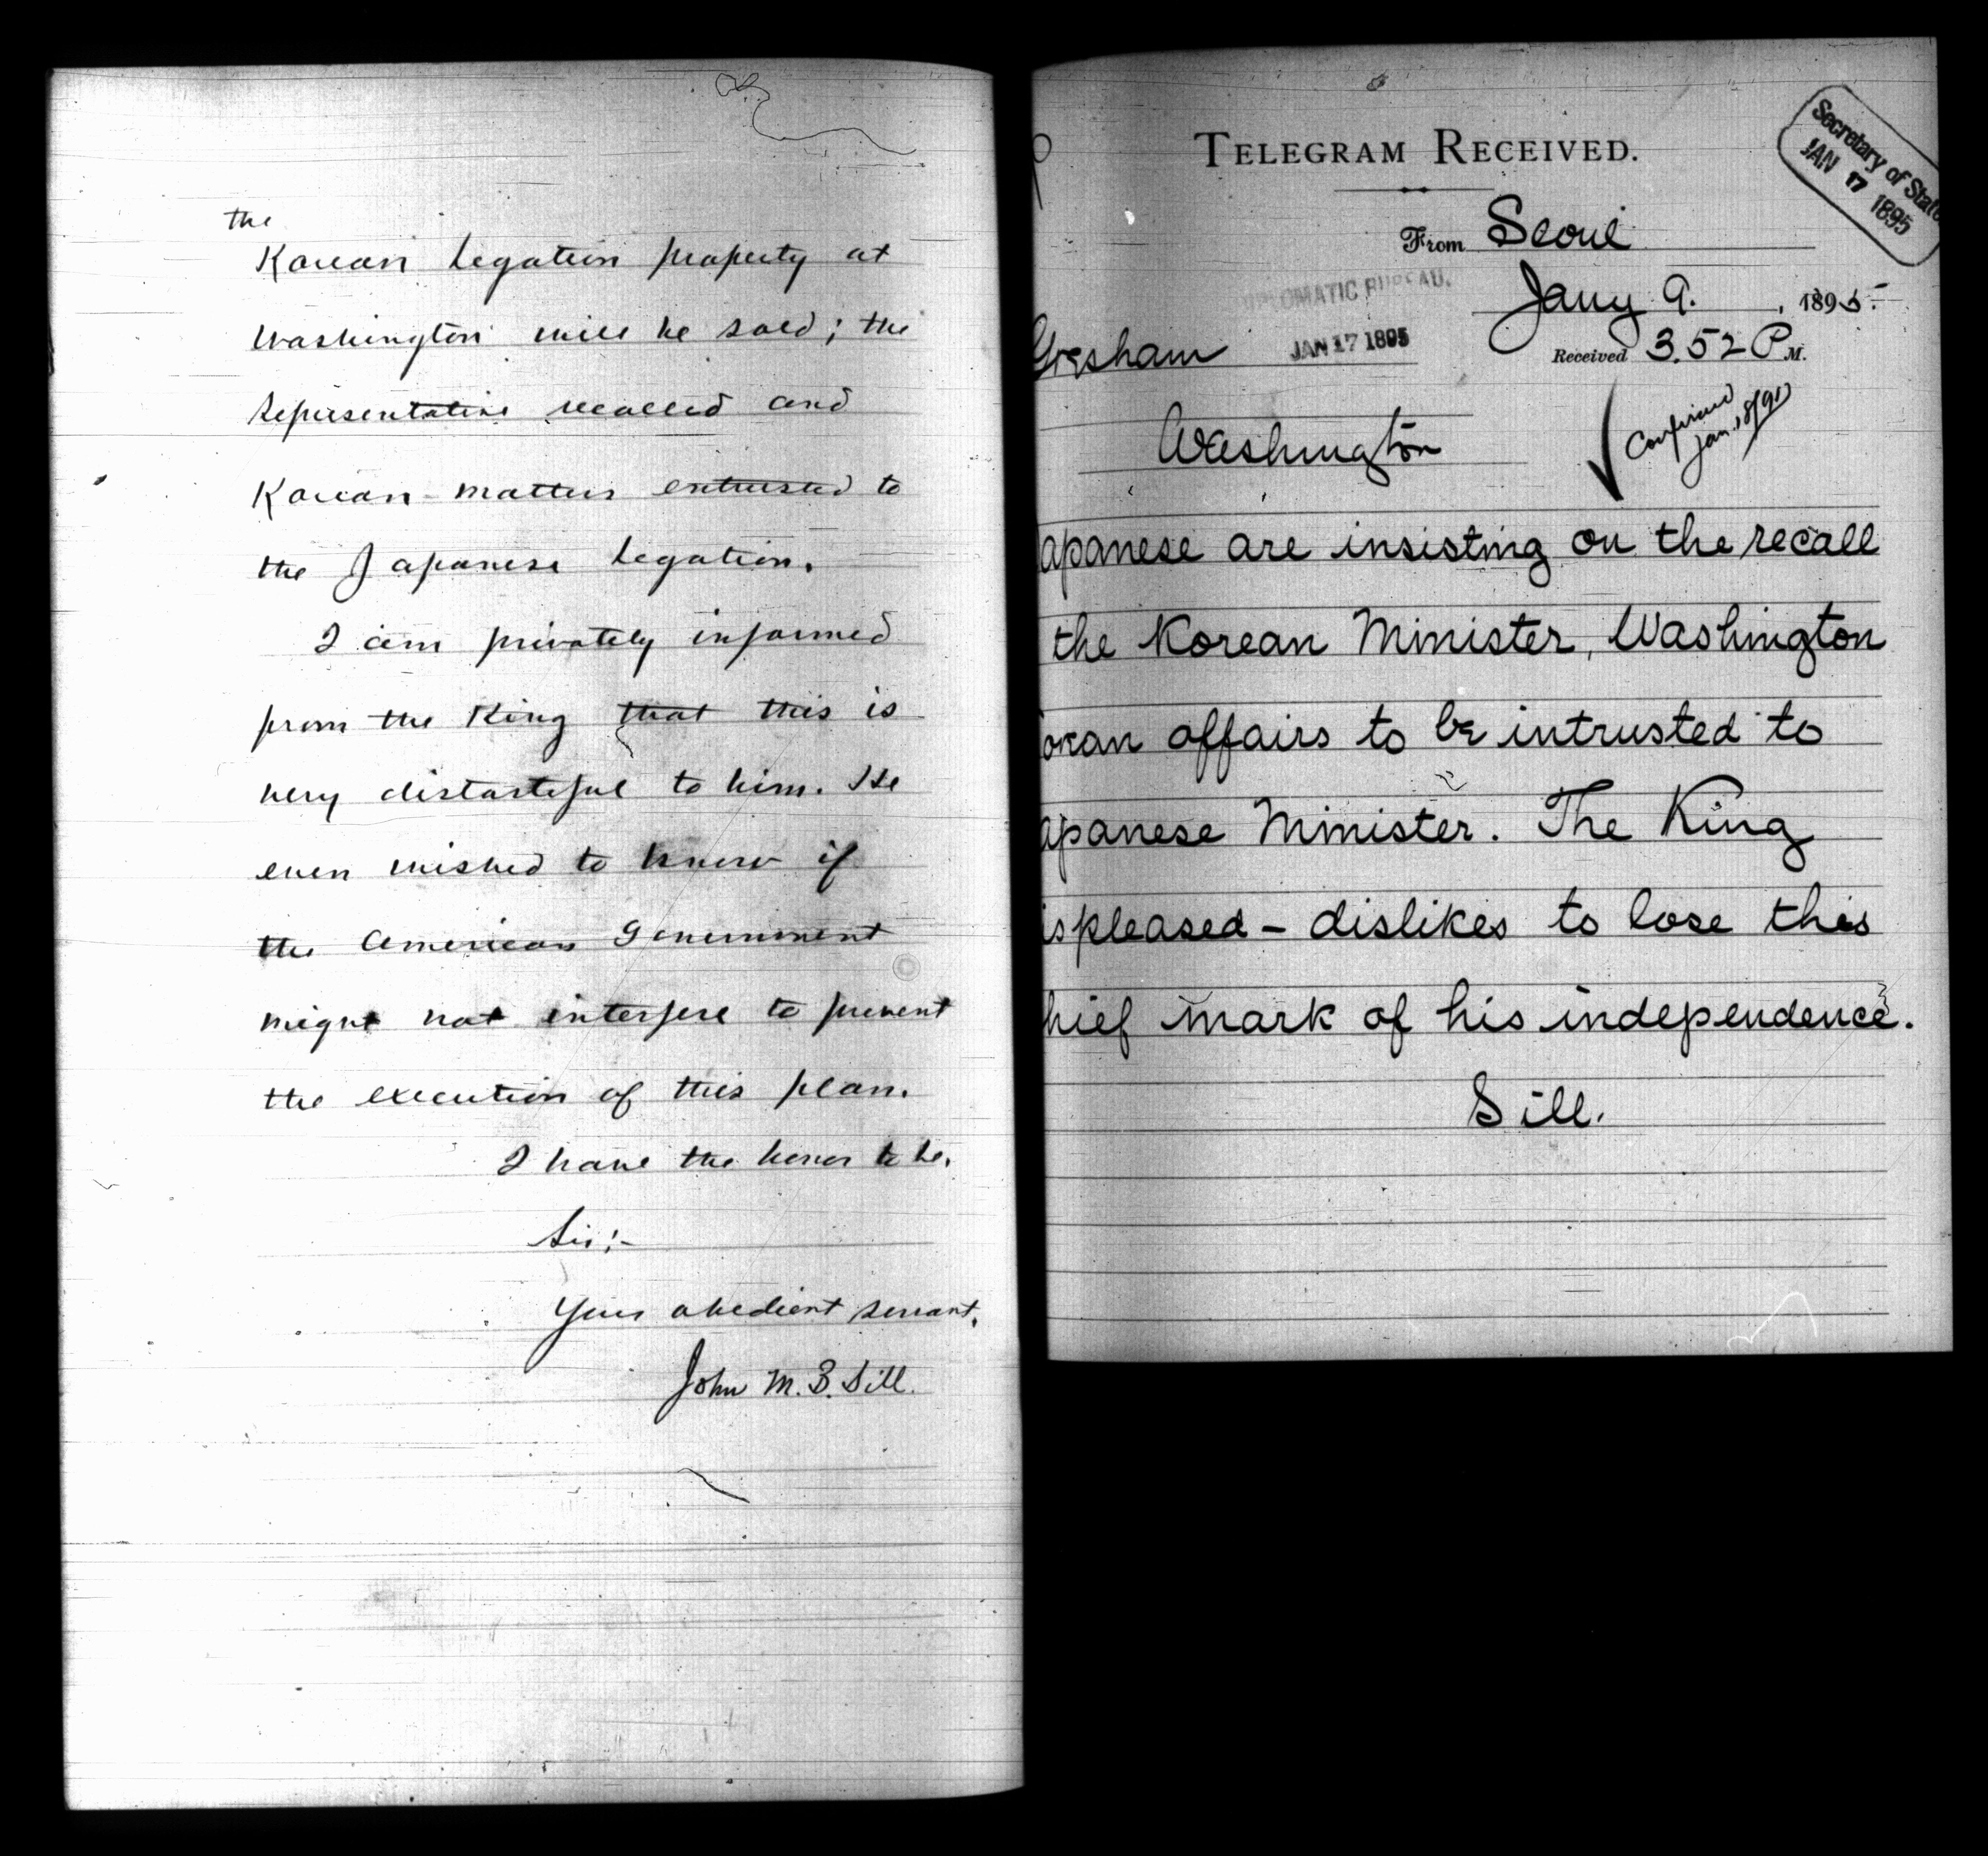 the
Korean Legation property at
Washington will be sold; the
Representative recalled and
Korean matters entrusted to
the Japanese Legation.
I am privately informed
from the King that this is
very distasteful to him. He
even wished to know if
the American Government
might not interfere to prevent
the execution of this plan.
I have the honor to be,
Sir:-
Your obedient servant,
John M. B. Sill.
TELEGRAM RECEIVED.
Secretary of State
JAN 17 1895
From Seoul
DIPLOMATIC BUREAU.
Jany 9. , 1895.
Gresham
JAN 17 1895
Received 3.52 P M.
Washington
Confirmed
Jan.
apanese are insisting on the recall
the Korean Minister, Washington
orean affairs to be intrusted to
apanese Minister. The King
ispleased - dislikes to lose this
hief mark of his independence.
Sill.